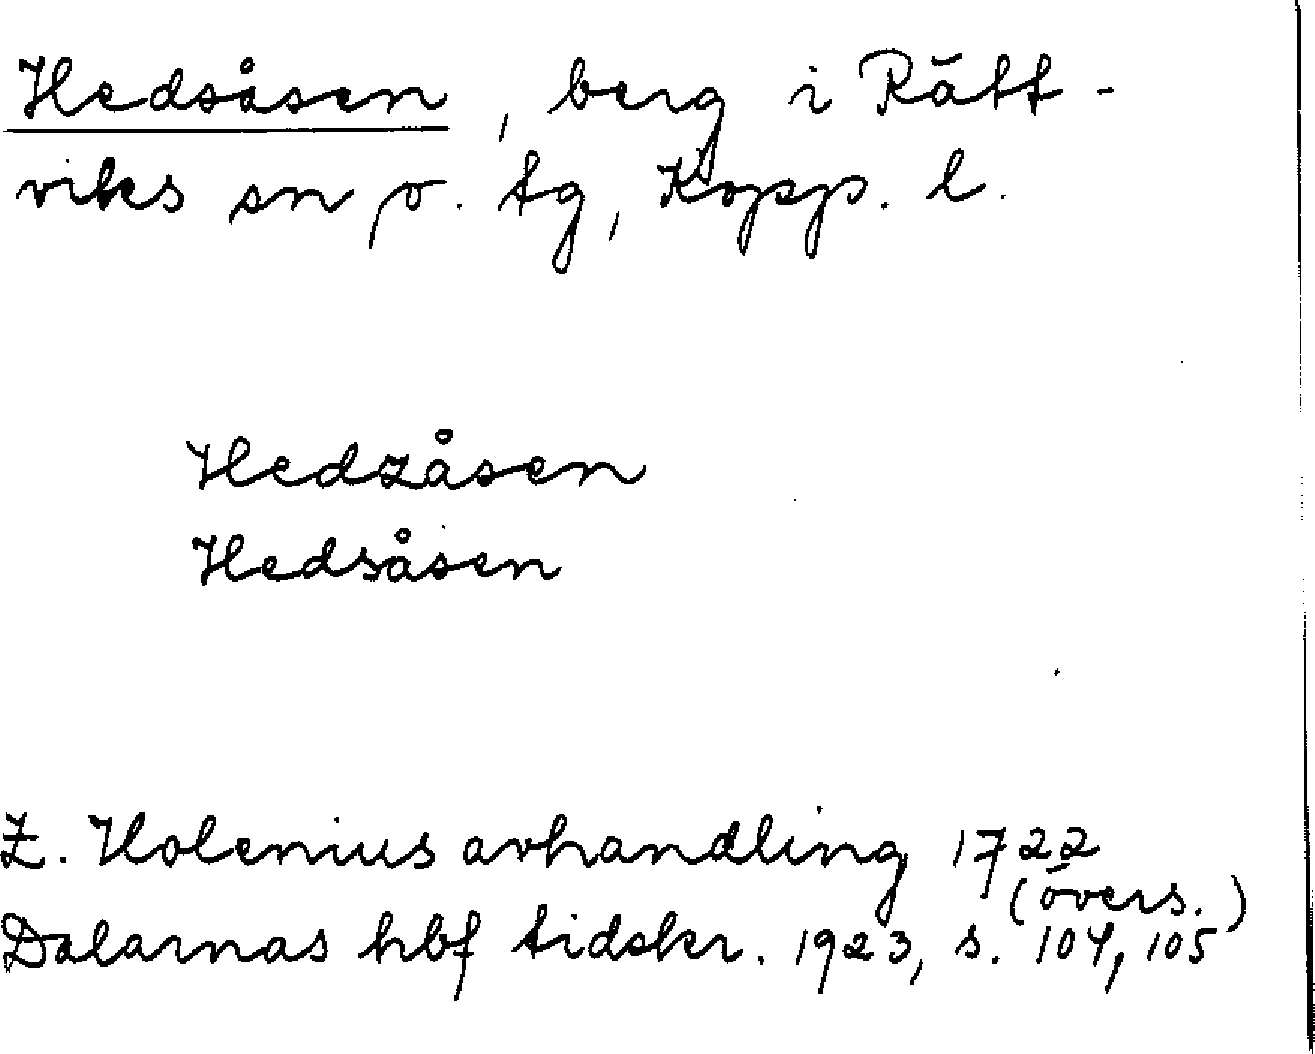 Hedsåsen, berg i Rätt-
viks sn o. tg, Kopp. l.
Hedzåsen
Hedsåsen
Z. Holenius avhandling 1722
(övers.)
Dalarnas hbf tidskr. 1923, s. 104, 105